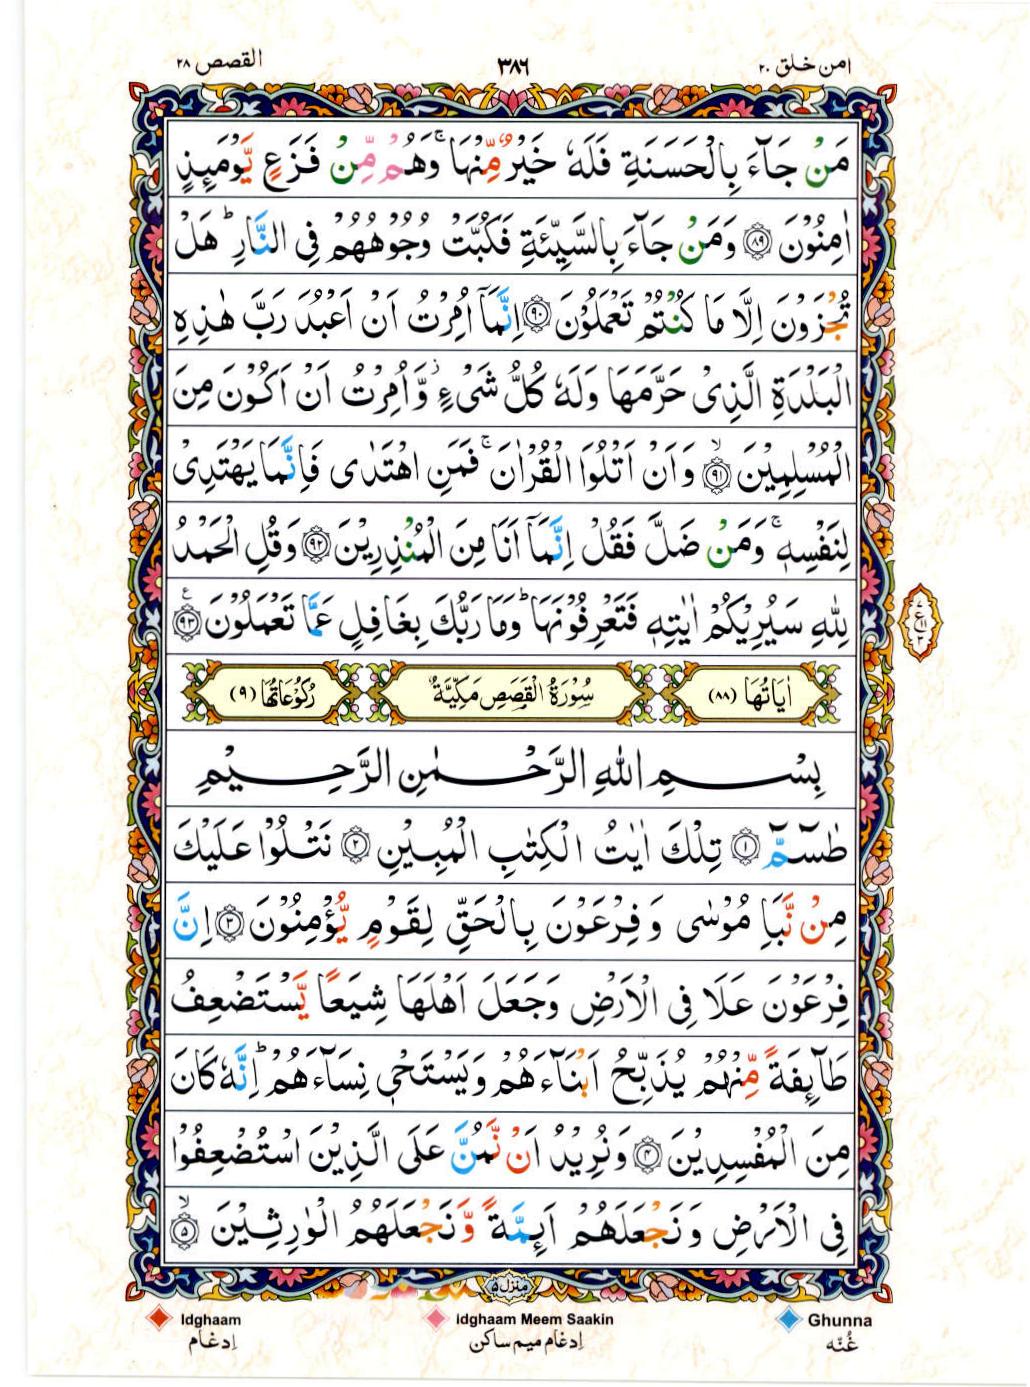 امن خلق ٢٠
٣٨٦
القصص ٢٨
مَنْ جَآءَ بِالْحَسَنَةِ فَلَهٗ خَيْرٌ مِّنْهَا ۚ وَهُمْ مِّنْ فَزَعٍ يَّوْمَئِذٍ
اٰمِنُوْنَ ﴿٨٩﴾ وَمَنْ جَآءَ بِالسَّيِّئَةِ فَكُبَّتْ وُجُوْهُهُمْ فِى النَّارِ ؕ هَلْ
تُجْزَوْنَ اِلَّا مَا كُنْتُمْ تَعْمَلُوْنَ ﴿٩٠﴾ اِنَّمَاۤ اُمِرْتُ اَنْ اَعْبُدَ رَبَّ هٰذِهِ
الْبَلْدَةِ الَّذِىْ حَرَّمَهَا وَلَهٗ كُلُّ شَىْءٍ ز وَّاُمِرْتُ اَنْ اَكُوْنَ مِنَ
الْمُسْلِمِيْنَ ۙ﴿٩١﴾ وَاَنْ اَتْلُوَا الْقُرْاٰنَ ۚ فَمَنِ اهْتَدٰى فَاِنَّمَا يَهْتَدِىْ
لِنَفْسِهٖ ۚ وَمَنْ ضَلَّ فَقُلْ اِنَّمَاۤ اَنَا مِنَ الْمُنْذِرِيْنَ ﴿٩٢﴾ وَقُلِ الْحَمْدُ
لِلّٰهِ سَيُرِيْكُمْ اٰيٰتِهٖ فَتَعْرِفُوْنَهَا ؕ وَمَا رَبُّكَ بِغَافِلٍ عَمَّا تَعْمَلُوْنَ ﴿٩٣﴾ ع
اٰيَاتُهَا (٨٨)
سُوْرَةُ الْقَصَصِ مَكِّيَّةٌ
رُكُوْعَاتُهَا (٩)
بِسْمِ اللّٰهِ الرَّحْمٰنِ الرَّحِيْمِ
طٰسٓمّٓ ﴿١﴾ تِلْكَ اٰيٰتُ الْكِتٰبِ الْمُبِيْنِ ﴿٢﴾ نَتْلُوْا عَلَيْكَ
مِنْ نَّبَاِ مُوْسٰى وَ فِرْعَوْنَ بِالْحَقِّ لِقَوْمٍ يُّؤْمِنُوْنَ ﴿٣﴾ اِنَّ
فِرْعَوْنَ عَلَا فِى الْاَرْضِ وَجَعَلَ اَهْلَهَا شِيَعًا يَّسْتَضْعِفُ
طَآئِفَةً مِّنْهُمْ يُذَبِّحُ اَبْنَآءَهُمْ وَيَسْتَحْىٖ نِسَآءَهُمْ ؕ اِنَّهٗ كَانَ
مِنَ الْمُفْسِدِيْنَ ﴿٤﴾ وَنُرِيْدُ اَنْ نَّمُنَّ عَلَى الَّذِيْنَ اسْتُضْعِفُوْا
فِى الْاَرْضِ وَنَجْعَلَهُمْ اَئِمَّةً وَّنَجْعَلَهُمُ الْوٰرِثِيْنَ ۙ﴿٥﴾
منزل ٥
Idghaam
idghaam Meem Saakin
Ghunna
اِدغام
اِدغام میم ساکن
غُنّه